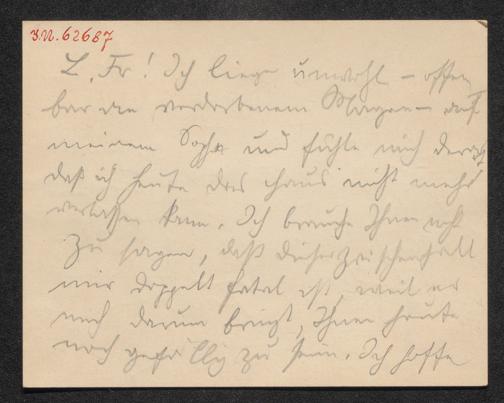 I.N. 62687
L. Fr! Ich liege unwohl – offen
bar an verdorbenem Magen – auf
meinem Sopha und fühle mich derart,
daß ich heute das Haus nicht mehr
verlassen kann. Ich brauche Ihnen nicht
zu sagen, daß dieser Zwischenfall
mir doppelt fatal ist, weil er
mich darum bringt, Ihnen heute
noch gefällig zu sein. Ich hoffe